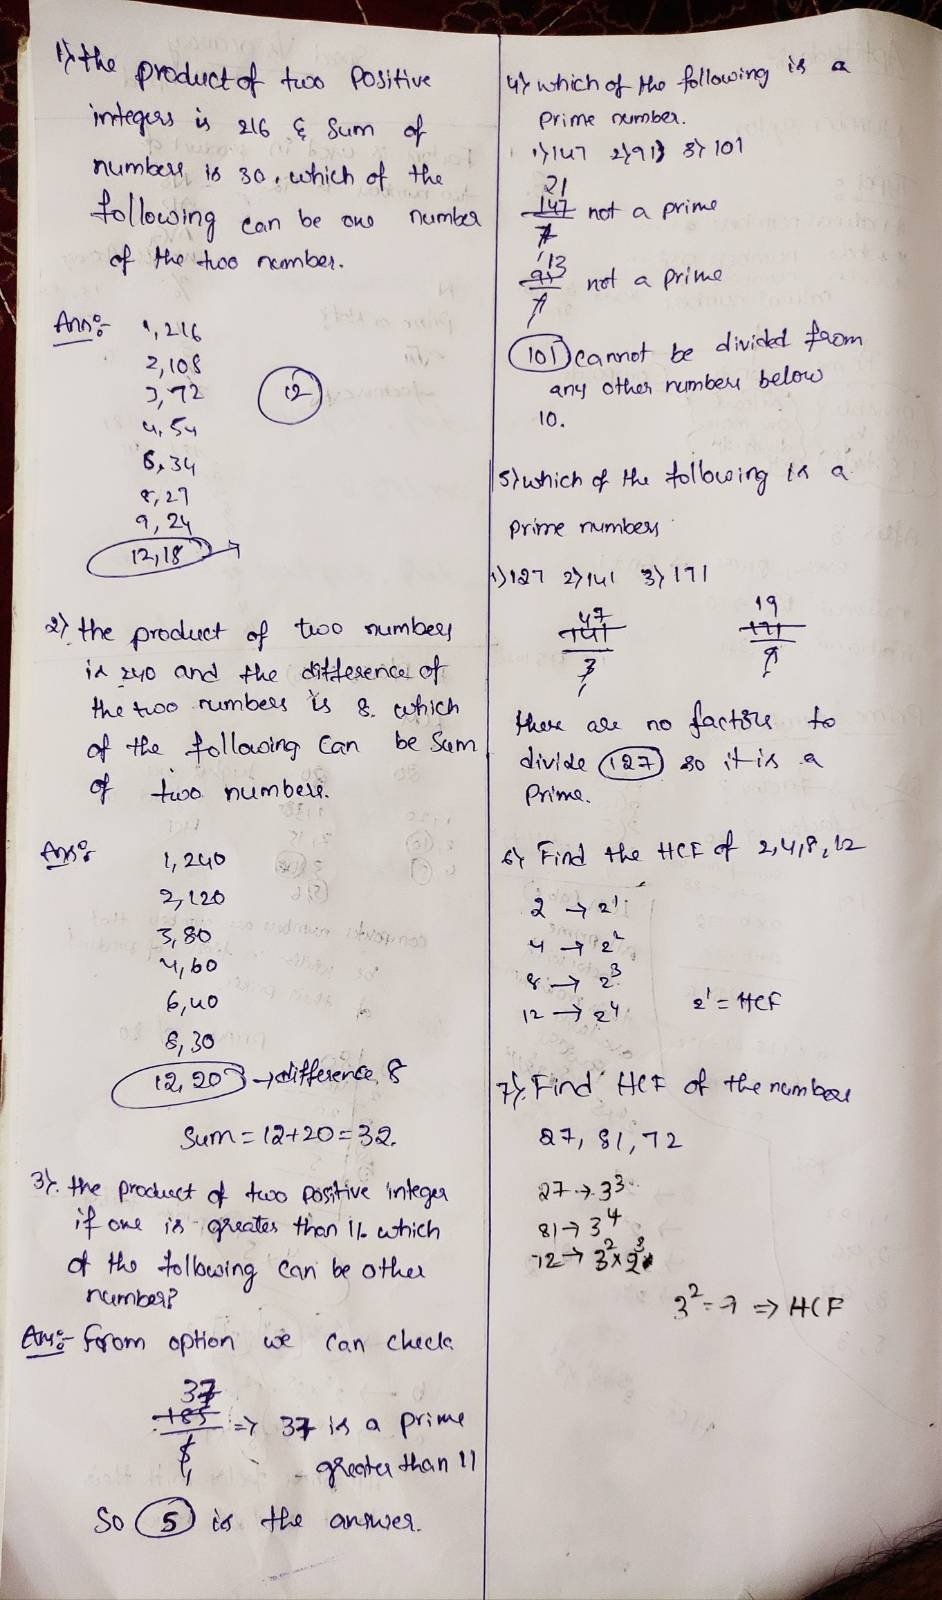 1) the product of two positive
integers is 216 & sum of
numbers is 30. which of the
following can be one number
of the two number.
Ans:-
1, 216
2, 108
3, 72
12
4, 54
6, 34
8, 27
9, 24
12, 18 →
2) the product of two numbers
is 240 and the difference of
the two numbers is 8. which
of the following can be sum
of two numbers.
Ans:-
1, 240
2, 120
3, 80
4, 60
6, 40
8, 30
12, 20 → difference 8
Sum = 12+20 = 32.
3). the product of two positive integer
if one is greater than 11. which
of the following can be other
number?
Ans:- from option we can check
37
185 => 37 is a prime
5
greater than 11
So 5 is the answer.
4) which of the following is a
prime number.
1) 147 2) 91 3) 101
21
147 not a prime
7
13
91 not a prime
7
101 cannot be divided from
any other numbers below
10.
5) which of the following is a
prime numbers
1) 127 2) 141 3) 171
47 19
141 171
3 9
there are no factors to
divide 127 so it is a
prime.
6) Find the HCF of 2,4,8,12
2 → 2¹
4 → 2²
8 → 2³
12 → 2⁴
2¹ = HCF
7). Find HCF of the numbers
27, 81, 72
27 → 3³
81 → 3⁴
72 → 3² x 2³
3² = 9 => HCF